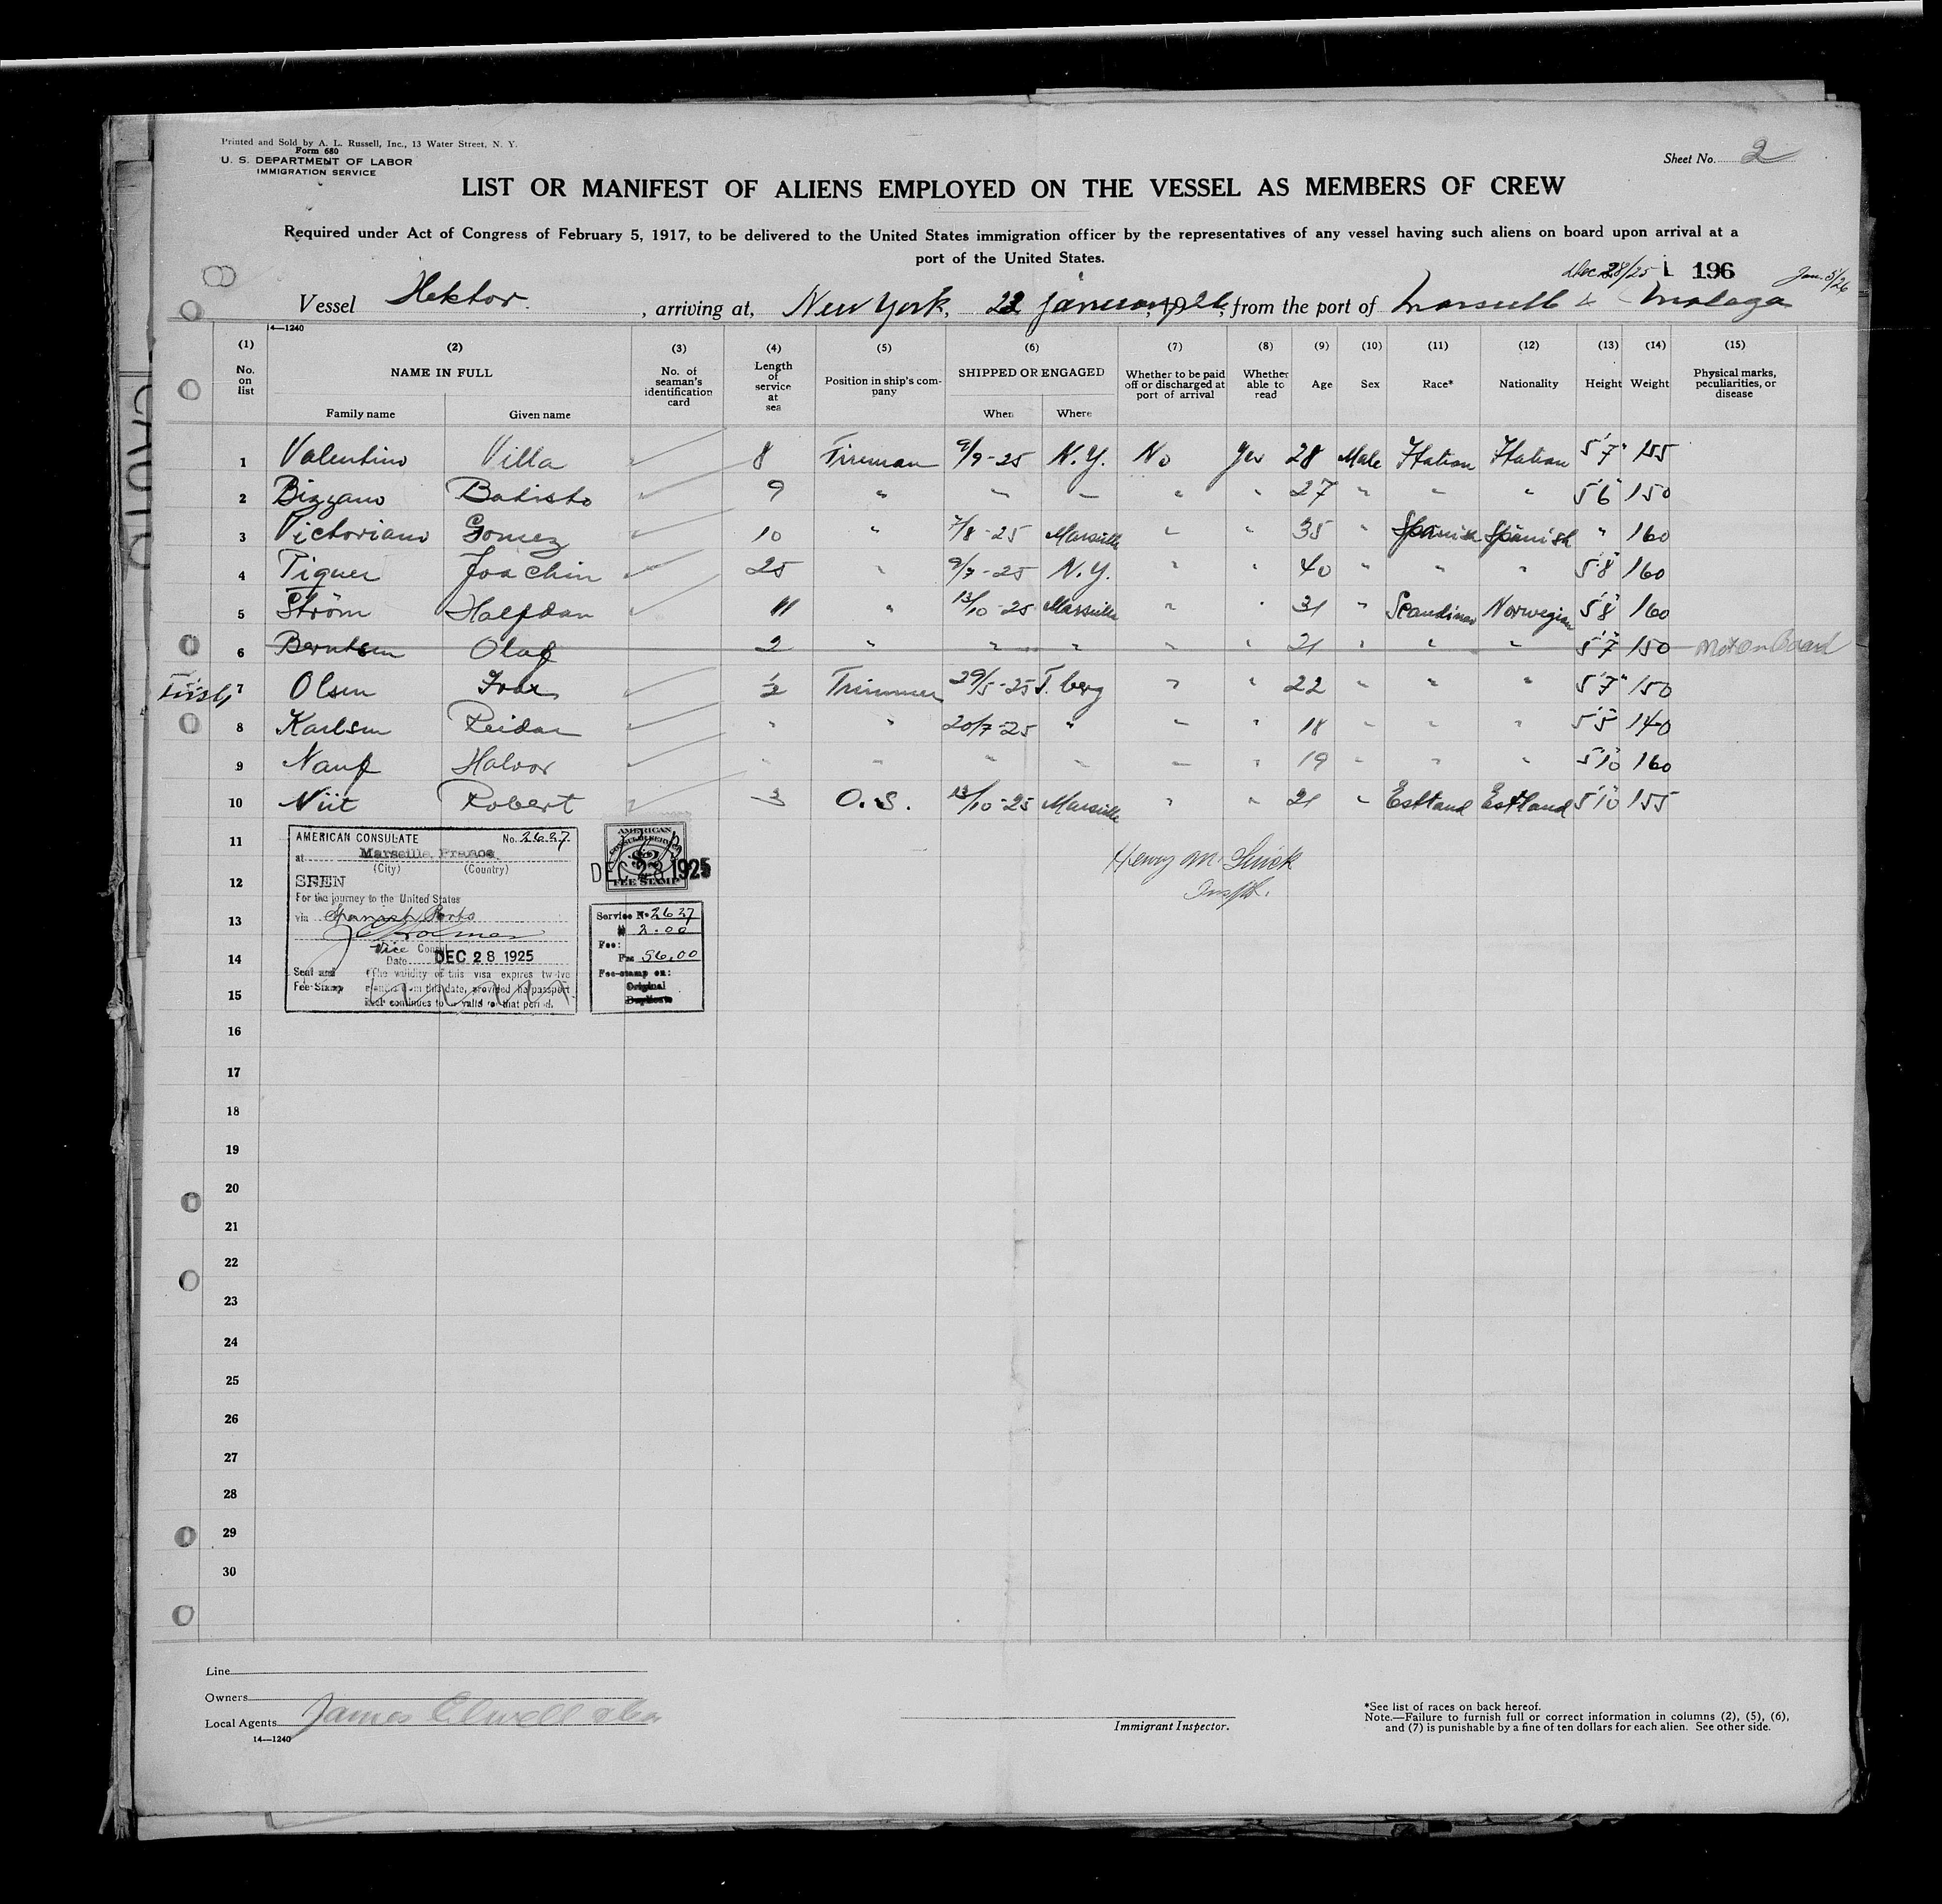 Printed and Sold by A. L. Russell, Inc., 13 Water Street, N. Y.
Form 680
U. S. DEPARTMENT OF LABOR
IMMIGRATION SERVICE
Sheet No. 2
LIST OR MANIFEST OF ALIENS EMPLOYED ON THE VESSEL AS MEMBERS OF CREW
Required under Act of Congress of February 5, 1917, to be delivered to the United States immigration officer by the representatives of any vessel having such aliens on board upon arrival at a
port of the United States.
Dec 28/25 196 Jan. 5/26
Vessel Hektor. , arriving at, New York, 22 januar 1926, from the port of Marseille & Malaga
14—1240
(1) (2) (3) (4) (5) (6) (7) (8) (9) (10) (11) (12) (13) (14) (15)
No. on list NAME IN FULL No. of seaman's identification card Length of service at sea Position in ship's company SHIPPED OR ENGAGED Whether to be paid off or discharged at port of arrival Whether able to read Age Sex Race* Nationality Height Weight Physical marks, peculiarities, or disease
Family name Given name When Where
1 Valentino Villa 8 Fireman 9/9-25 N.Y. No Yes 28 Male Italian Italian 5'7" 155
2 Bizzano Batisto 9 " " " " " 27 " " " 5'6" 150
3 Victoriano Gomez 10 " 7/8-25 Marseille " " 35 " Spanish Spanish " 160
4 Tiguer Joachin 25 " 9/7-25 N.Y. " " 40 " " " 5'8" 160
5 Ström Halfdan 11 " 13/10-25 Marseille " " 31 " Scandinav Norwegian 5'8" 160
6 Berntsen Olaf 2 " " " " " 21 " " " 5'7" 150 Not on Board
7 Olsen Ivar ½ Trimmer 29/5-25 T.berg " " 22 " " " 5'7" 150
8 Karlsen Reidar " " 20/7-25 " " " 18 " " " 5'5" 140
9 Nauf Halvor " " " " " " 19 " " " 5'10" 160
10 Niit Robert 3 O.S. 13/10-25 Marseille " " 21 " Estland Estland 5'10" 155
11
12
13
14
15
AMERICAN CONSULATE No. 2627
at Marseille, France
(City) (Country)
SEEN
For the journey to the United States
via Spanish Ports
Vice Consul
Date DEC 28 1925
Seal and Fee Stamp
(The validity of this visa expires twelve
months from this date, provided the passport
itself continues to be valid for that period.
AMERICAN
CONSULAR SERVICE
$2
FEE STAMP
DEC 28 1925
Service No 2627
Fee: $ 2.00
Frs 56.00
Fee-stamp on:
Original
Duplicate
Henry M.
16
17
18
19
20
21
22
23
24
25
26
27
28
29
30
Line
Owners
Local Agents James Elwell & Co
14—1240
Immigrant Inspector.
*See list of races on back hereof.
Note.—Failure to furnish full or correct information in columns (2), (5), (6),
and (7) is punishable by a fine of ten dollars for each alien. See other side.